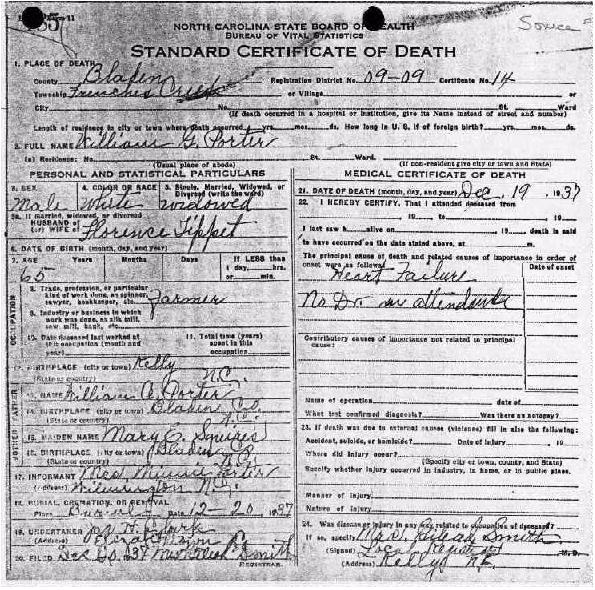 Source
NORTH CAROLINA STATE BOARD OF HEALTH
BUREAU OF VITAL STATISTICS
STANDARD CERTIFICATE OF DEATH
1. PLACE OF DEATH
County Bladen Registration District No. 09-09 Certificate No. 14
Township Frenches Creek or Village or
City No. St. Ward
(If death occurred in a hospital or institution, give its Name instead of street and number)
Length of residence in city or town where death occurred yrs. mos. ds. How long in U. S. if of foreign birth? yrs. mos. ds.
2. FULL NAME William G. Porter
(a) Residence: No. St. Ward.
(Usual place of abode) (If non-resident give city or town and State)
PERSONAL AND STATISTICAL PARTICULARS
3. SEX 4. COLOR OR RACE 5. Single, Married, Widowed, or Divorced (write the word)
Male White widowed
5a. If married, widowed, or divorced
HUSBAND of
(or) WIFE of Florence Tippet
6. DATE OF BIRTH (month, day, and year)
7. AGE Years Months Days If LESS than
65 1 day, hrs.
or min.
OCCUPATION
8. Trade, profession, or particular
kind of work done, as spinner,
sawyer, bookkeeper, etc. Farmer
9. Industry or business in which
work was done, as silk mill,
saw mill, bank, etc.
10. Date deceased last worked at
this occupation (month and
year)
11. Total time (years)
spent in this
occupation
12. BIRTHPLACE (city or town) Kelly
(State or country) N.C.
FATHER
13. NAME William A. Porter
14. BIRTHPLACE (city or town) Bladen Co
(State or country) N.C.
MOTHER
15. MAIDEN NAME Mary E. Squires
16. BIRTHPLACE (city or town) Bladen Co
(State or country)
17. INFORMANT Mrs Porter
(Address) Wilmington N.C.
18. BURIAL, CREMATION, OR REMOVAL
Place Date 12-20 1937
19. UNDERTAKER
(Address)
20. FILED Dec 20 1937 Smith
REGISTRAR.
MEDICAL CERTIFICATE OF DEATH
21. DATE OF DEATH (month, day, and year) Dec 19, 1937
22. I HEREBY CERTIFY, That I attended deceased from
19 to 19
I last saw h alive on 19 death is said
to have occurred on the date stated above, at m.
The principal cause of death and related causes of importance in order of
onset were as follows: Date of onset
Heart Failure
No Dr. in attendance
Contributory causes of importance not related to principal
cause:
Name of operation date of
What test confirmed diagnosis? Was there an autopsy?
23. If death was due to external causes (violence) fill in also the following:
Accident, suicide, or homicide? Date of injury , 19
Where did injury occur?
(Specify city or town, county, and State)
Specify whether injury occurred in industry, in home, or in public place.
Manner of injury
Nature of injury
24. Was disease or injury in any way related to occupation of deceased?
If so, specify Mrs. Gilead Smith
(Signed) Local Registrar M.D.
(Address) Kelly N.C.